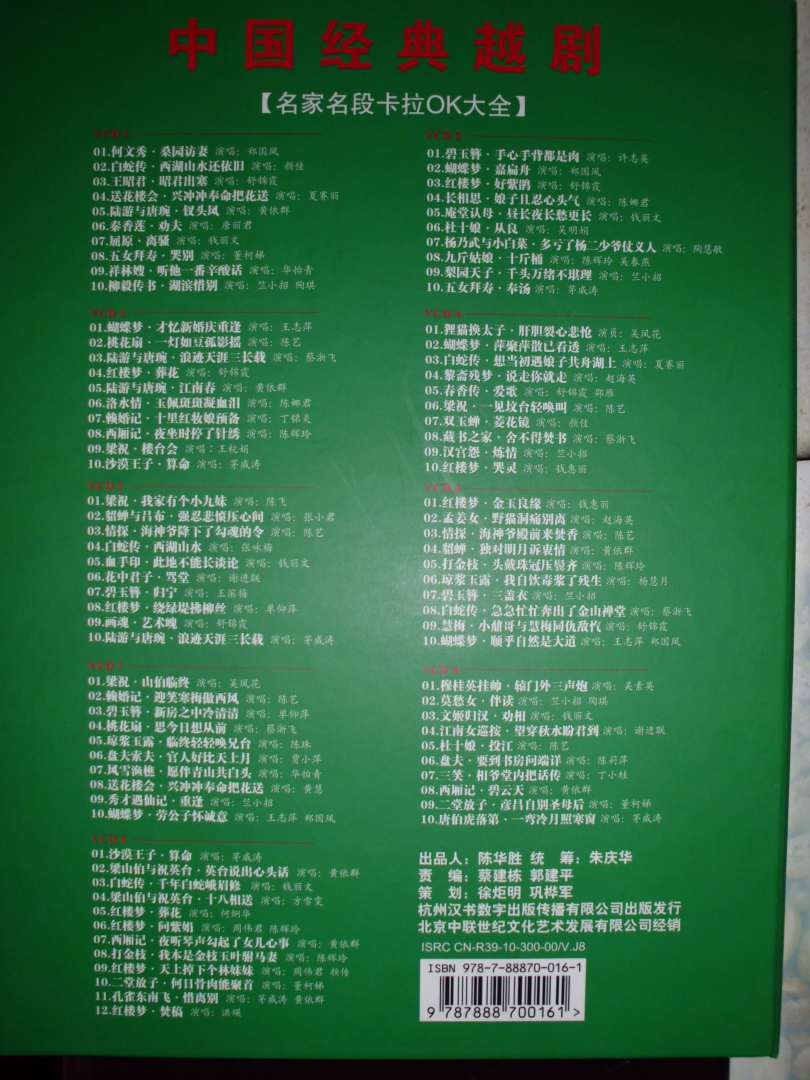 中国经典越剧
【名家名段卡拉OK大全】
VCD 1
01.何文秀·桑园访妻 演唱：郑国凤
02.白蛇传·西湖山水还依旧 演唱：颜佳
03.王昭君·昭君出塞 演唱：舒锦霞
04.送花楼会·兴冲冲奉命把花送 演唱：夏赛丽
05.陆游与唐琬·钗头凤 演唱：黄依群
06.秦香莲·劝夫 演唱：唐丽君
07.屈原·离骚 演唱：钱丽文
08.五女拜寿·哭别 演唱：董柯娣
09.祥林嫂·听他一番辛酸话 演唱：华怡青
10.柳毅传书·湖滨惜别 演唱：竺小招 陶琪
VCD 2
01.碧玉簪·手心手背都是肉 演唱：许志英
02.蝴蝶梦·嘉扁舟 演唱：郑国凤
03.红楼梦·好紫鹃 演唱：舒锦霞
04.长相思·娘子且忍心头气 演唱：陈娜君
05.庵堂认母·昼长夜长愁更长 演唱：钱丽文
06.杜十娘·从良 演唱：吴明娟
07.杨乃武与小白菜·多亏了杨二少爷仗义人 演唱：陶慧敏
08.九斤姑娘·十斤桶 演唱：陈辉玲 吴春燕
09.梨园天子·千头万绪不堪理 演唱：竺小招
10.五女拜寿·奉汤 演唱：茅威涛
VCD 3
01.蝴蝶梦·才忆新婚庆重逢 演唱：王志萍
02.桃花扇·一灯如豆孤影摇 演唱：陈艺
03.陆游与唐琬·浪迹天涯三长载 演唱：蔡浙飞
04.红楼梦·葬花 演唱：舒锦霞
05.陆游与唐琬·江南春 演唱：黄依群
06.洛水情·玉佩斑斑凝血泪 演唱：陈娜君
07.赖婚记·十里红妆娘预备 演唱：丁铭炎
08.西厢记·夜坐时停了针绣 演唱：陈辉玲
09.梁祝·楼台会 演唱：王杭娟
10.沙漠王子·算命 演唱：茅威涛
VCD 4
01.狸猫换太子·肝胆裂心悲怆 演员：吴凤花
02.蝴蝶梦·萍聚萍散已看透 演唱：王志萍
03.白蛇传·想当初遇娘子共舟湖上 演唱：夏赛丽
04.黎斋残梦·说走你就走 演唱：赵海英
05.春香传·爱歌 演唱：舒锦霞 郑雁
06.梁祝·一见坟台轻唤叫 演唱：陈艺
07.双玉蝉·菱花镜 演唱：颜佳
08.藏书之家·舍不得焚书 演唱：蔡浙飞
09.汉宫怨·炼情 演唱：竺小招
10.红楼梦·哭灵 演唱：钱惠丽
01.梁祝·我家有个小九妹 演唱：陈飞
02.貂蝉与吕布·强忍悲愤压心间 演唱：张小君
03.情探·海神爷降下了勾魂的令 演唱：陈艺
04.白蛇传·西湖山水 演唱：张咏梅
05.血手印·此地不能长谈论 演唱：钱丽文
06.花中君子·骂堂 演唱：谢进联
07.碧玉簪·归宁 演唱：王滨梅
08.红楼梦·绕绿堤拂柳丝 演唱：单仰萍
09.画魂·艺术魄 演唱：舒锦霞
10.陆游与唐琬·浪迹天涯三长载 演唱：茅威涛
01.红楼梦·金玉良缘 演唱：钱惠丽
02.孟姜女·野猫洞痛别离 演唱：赵海英
03.情探·海神爷殿前来焚香 演唱：陈艺
04.貂蝉·独对明月诉衷情 演唱：黄依群
05.打金枝·头戴珠冠压鬓齐 演唱：陈辉玲
06.琼浆玉露·我自饮毒浆了残生 演唱：杨慧月
07.碧玉簪·三盖衣 演唱：竺小招
08.白蛇传·急急忙忙奔出了金山禅堂 演唱：蔡浙飞
09.慧梅·小鼐哥与慧梅同仇敌忾 演唱：舒锦霞
10.蝴蝶梦·顺乎自然是大道 演唱：王志萍 郑国凤
01.梁祝·山伯临终 演唱：吴凤花
02.赖婚记·迎笑寒梅傲西风 演唱：陈艺
03.碧玉簪·新房之中冷清清 演唱：单仰萍
04.桃花扇·思今日想从前 演唱：蔡浙飞
05.琼浆玉露·临终轻轻唤兄台 演唱：陈珠
06.盘夫索夫·官人好比天上月 演唱：黄小萍
07.风雪渔樵·愿伴青山共白头 演唱：华怡青
08.送花楼会·兴冲冲奉命把花送 演唱：黄慧
09.秀才遇仙记·重逢 演唱：竺小招
10.蝴蝶梦·劳公子怀诚意 演唱：王志萍 郑国凤
01.穆桂英挂帅·辕门外三声炮 演唱：吴素英
02.莫愁女·伴读 演唱：竺小招 陶琪
03.文姬归汉·劝相 演唱：钱丽文
04.江南女巡按·望穿秋水盼君到 演唱：谢进联
05.杜十娘·投江 演唱：陈艺
06.盘夫·要到书房问端详 演唱：陈莉萍
07.三笑·相爷堂内把话传 演唱：丁小蛙
08.西厢记·碧云天 演唱：黄依群
09.二堂放子·彦昌自别圣母后 演唱：董柯娣
10.唐伯虎落第·一弯冷月照寒窗 演唱：茅威涛
01.沙漠王子·算命 演唱：茅威涛
02.梁山伯与祝英台·英台说出心头话 演唱：黄依群
03.白蛇传·千年白蛇峨眉修 演唱：钱丽文
04.梁山伯与祝英台·十八相送 演唱：方雪雯
05.红楼梦·葬花 演唱：何炯华
06.红楼梦·问紫娟 演唱：周伟君 陈辉玲
07.西厢记·夜听琴声勾起了女儿心事 演唱：黄依群
08.打金枝·我本是金枝玉叶驸马妻 演唱：陈辉玲
09.红楼梦·天上掉下个林妹妹 演唱：周伟君 颜传
10.二堂放子·何日骨肉能聚首 演唱：董柯娣
11.孔雀东南飞·惜离别 演唱：茅威涛 黄依群
12.红楼梦·焚稿 演唱：洪瑛
出品人：陈华胜 统 筹：朱庆华
责 编：蔡建栋 郭建平
策 划：徐炬明 巩桦军
杭州汉书数字出版传播有限公司出版发行
北京中联世纪文化艺术发展有限公司经销
ISRC CN-R39-10-300-00/V.J8
ISBN 978-7-88870-016-1
9 787888 700161 >